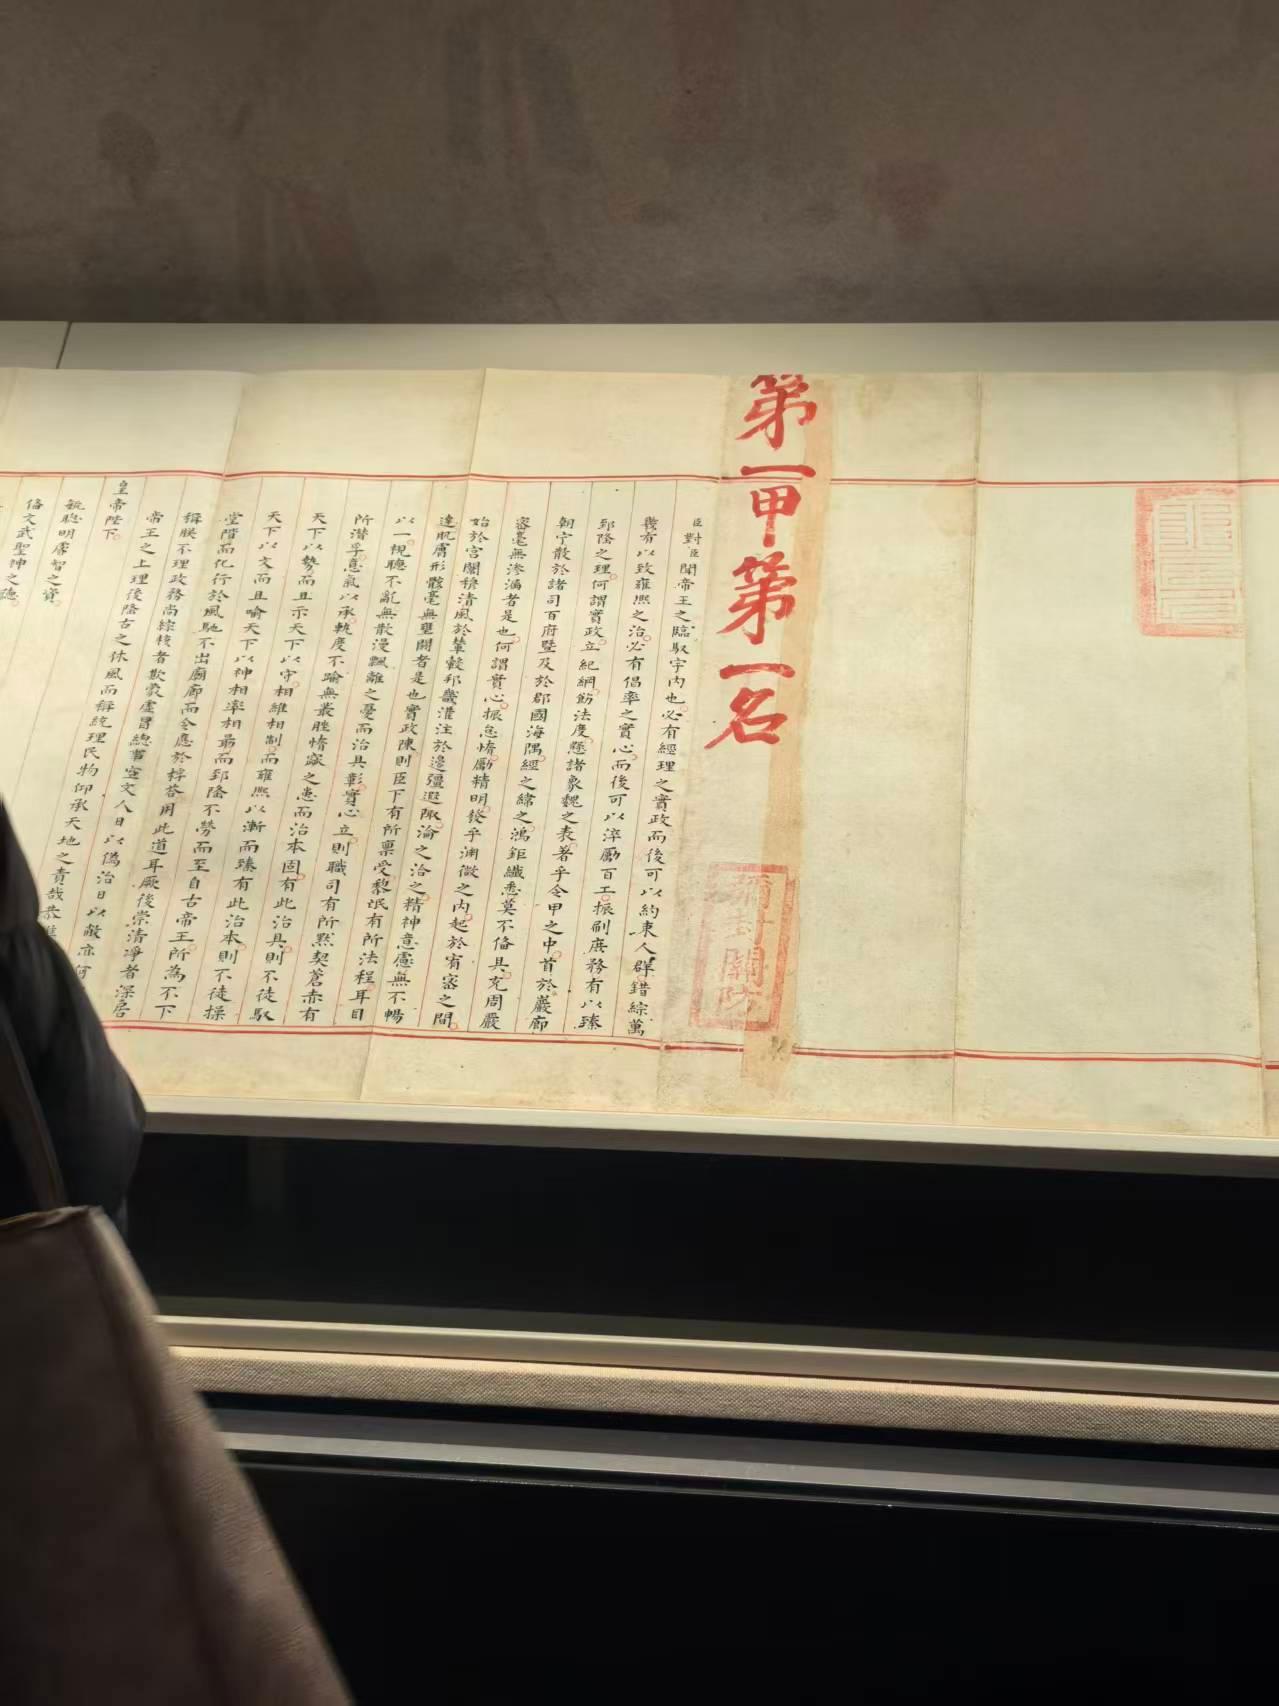 第一甲第一名
彌封關防
臣對臣聞帝王之臨馭宇內也必有經理之實政而後可以約束人群錯綜萬
幾有以致雍熙之治必有倡率之實心而後可以淬勵百工振刷庶務有以臻
郅隆之理何謂實政立紀綱飭法度懸諸象魏之表著乎令甲之中首於巖廊
朝宁散於諸司百府暨及於郡國海隅經之緯之鴻鉅纖悉莫不備具充周嚴
密毫無滲漏者是也何謂實心振怠惰勵精明發乎淵微之內起於宥密之間
始於宮闈穆清風於輦轂邦畿灌注於邊疆遐陬淪之洽之精神意慮無不暢
達肌膚形骸毫無壅閼者是也實政陳則臣下有所禀受黎氓有所法程耳目
以一視聽不亂無散漫飄離之憂而治具彰實心立則職司有所默契蒼赤有
所潛孚意氣以承軌度不踰無叢脞惰窳之患而治本固有此治具則不徒馭
天下以勢而且示天下以守相維相制而雍熙以漸而臻有此治本則不徒操
天下以文而且喻天下以神相率相勗而郅隆不勞而至自古帝王所為不下
堂階而化行於風馳不出廟廊而令應於桴答用此道耳厥後崇清凈者深居
稱朕不理政務尚綜核者欺蒙虛冒總事空文人日以偽治日以敝亦何
帝王之上理後隆古之休風而稱統理民物仰承天地之責哉恭惟
皇帝陛下
毓聰明睿智之資
備文武聖神之德